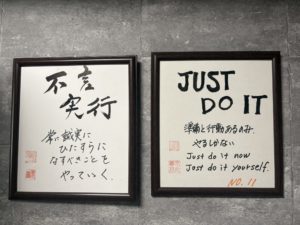 不言
実行
常に誠実に
ひたすらに
なすべきことを
やっていく.
JUST
DO IT
準備と行動あるのみ.
やるしかない
Just do it now
Just do it yourself.
NO. 11